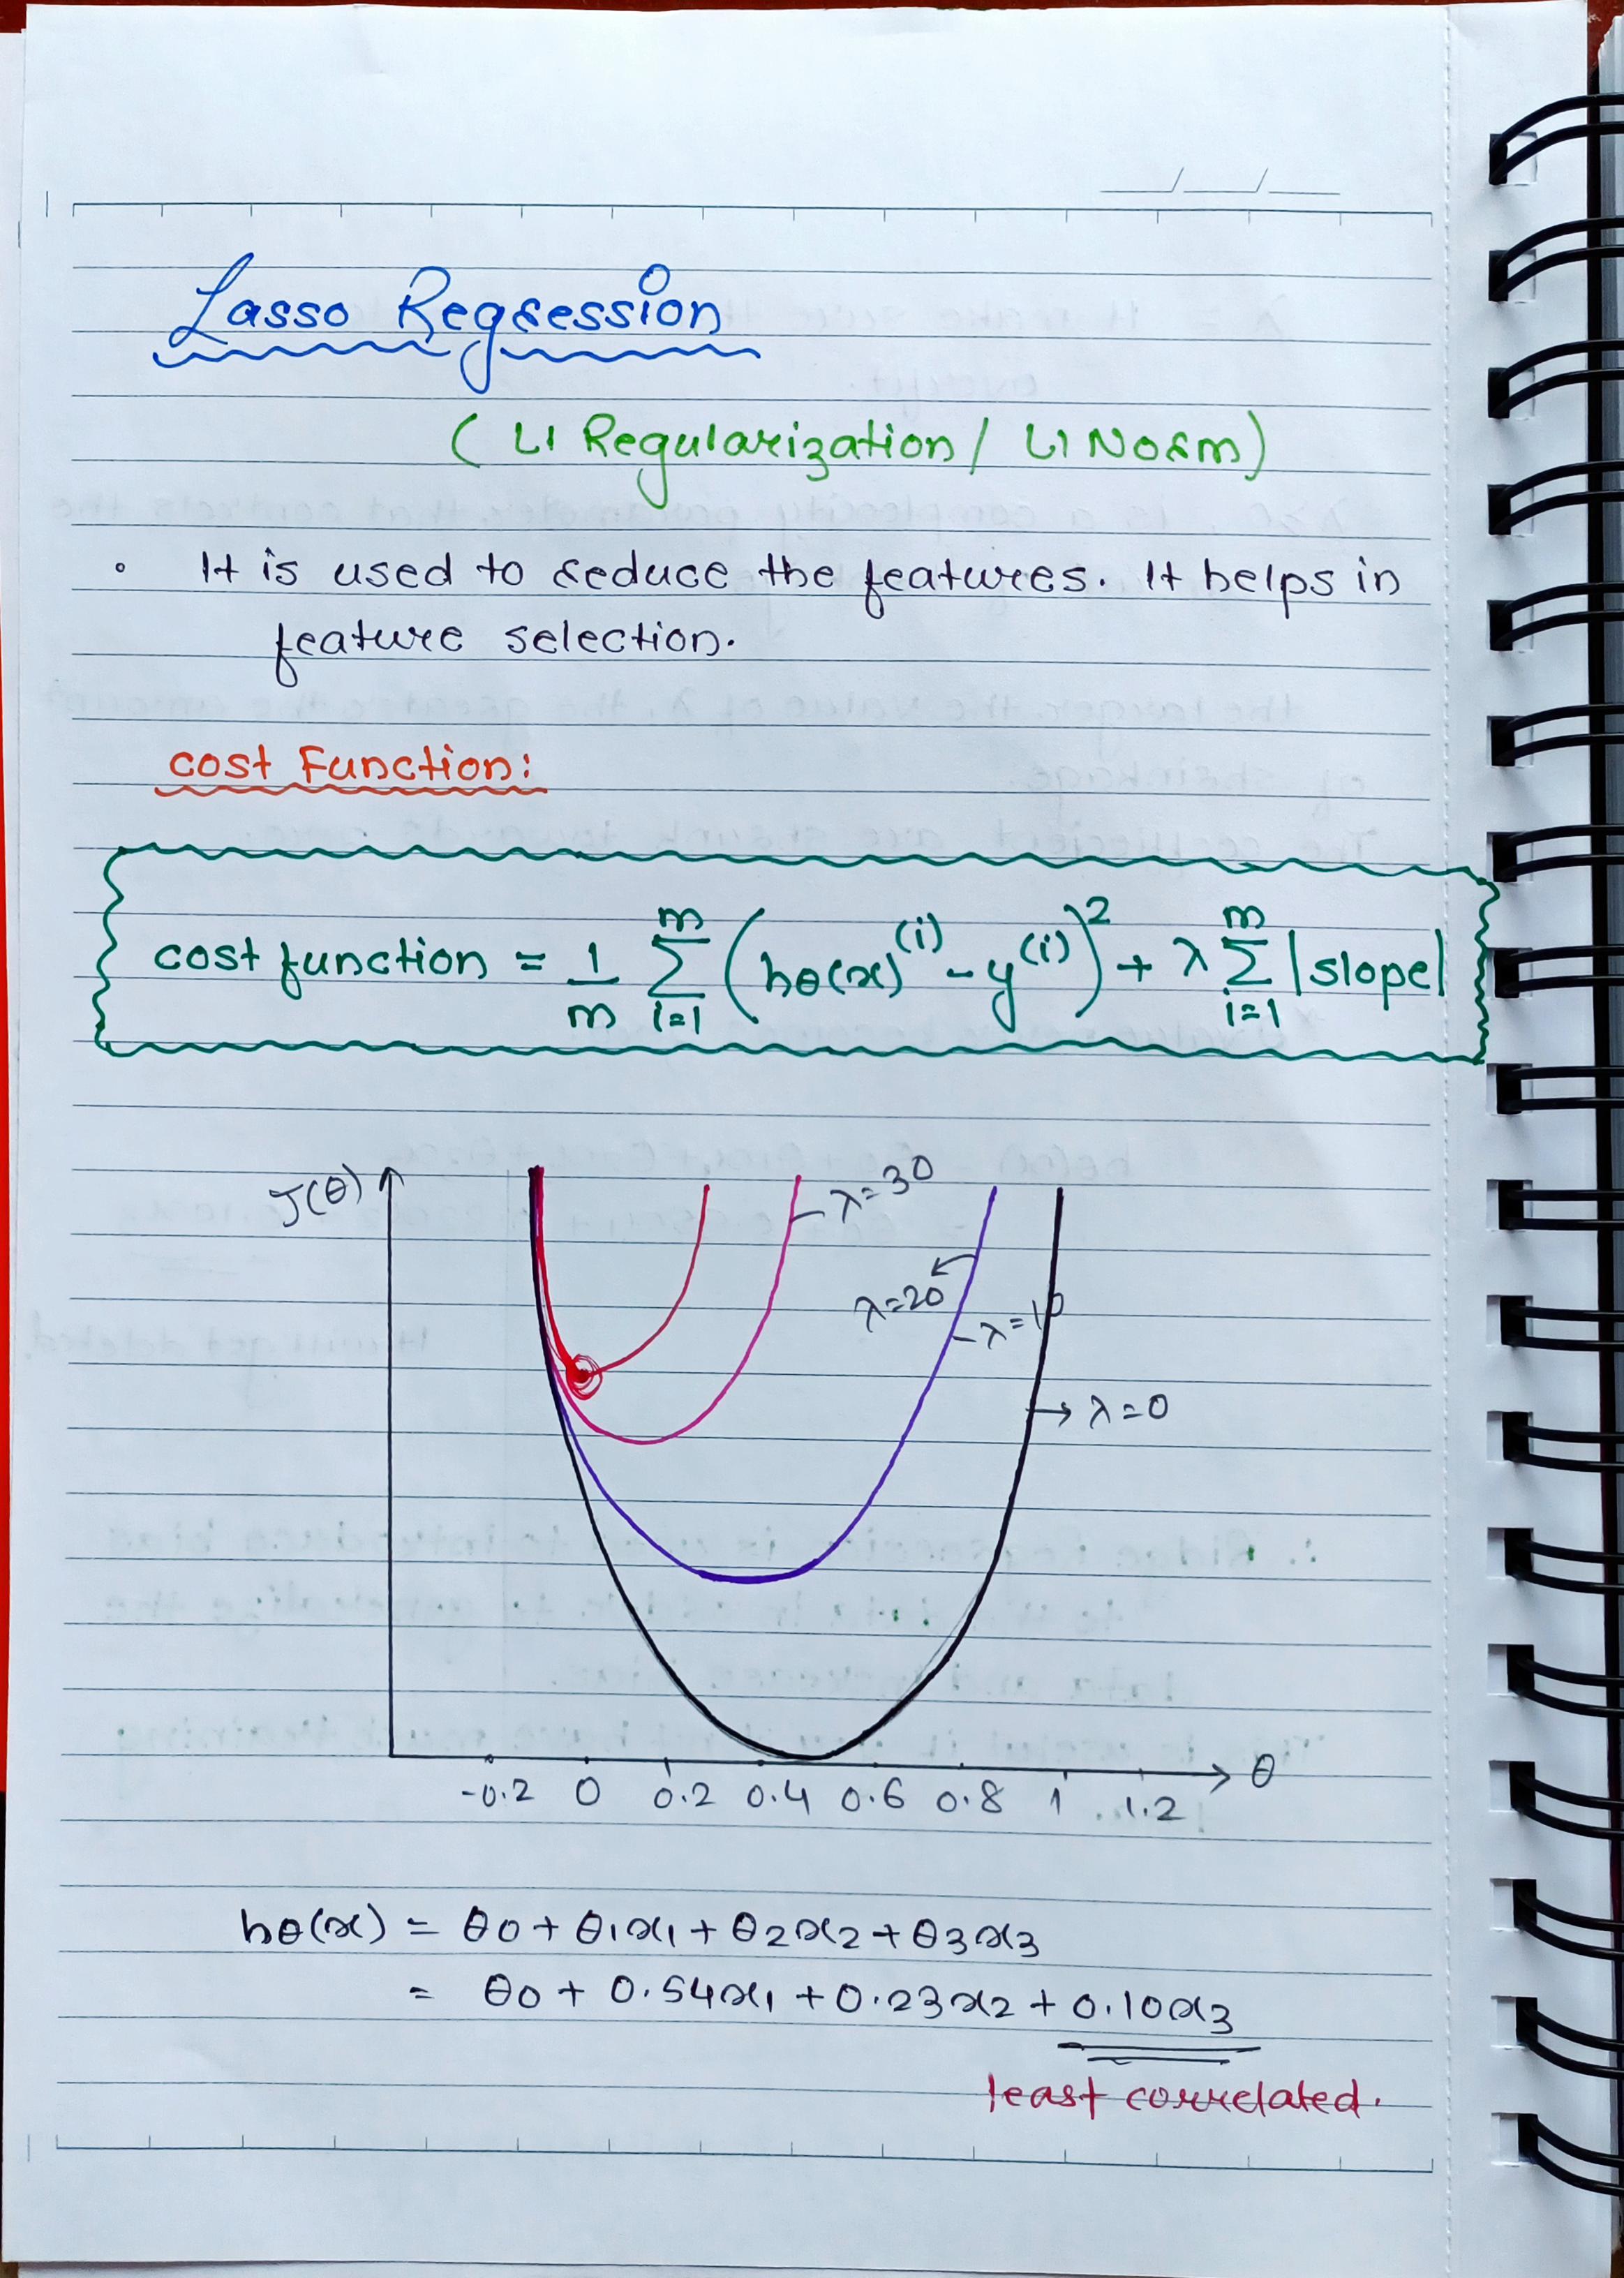 Lasso Regression
(L1 Regularization / L1 Norm)
• It is used to reduce the features. It helps in
feature selection.
cost Function:
cost function = 1/m Σ_{i=1}^{m} (hθ(x)^{(i)} - y^{(i)})^2 + λ Σ_{i=1}^{m} |slope|
J(θ)
λ=30
λ=20
λ=10
λ=0
-0.2 0 0.2 0.4 0.6 0.8 1 1.2
θ
hθ(x) = θ0 + θ1x1 + θ2x2 + θ3x3
= θ0 + 0.54x1 + 0.23x2 + 0.10x3
least correlated.